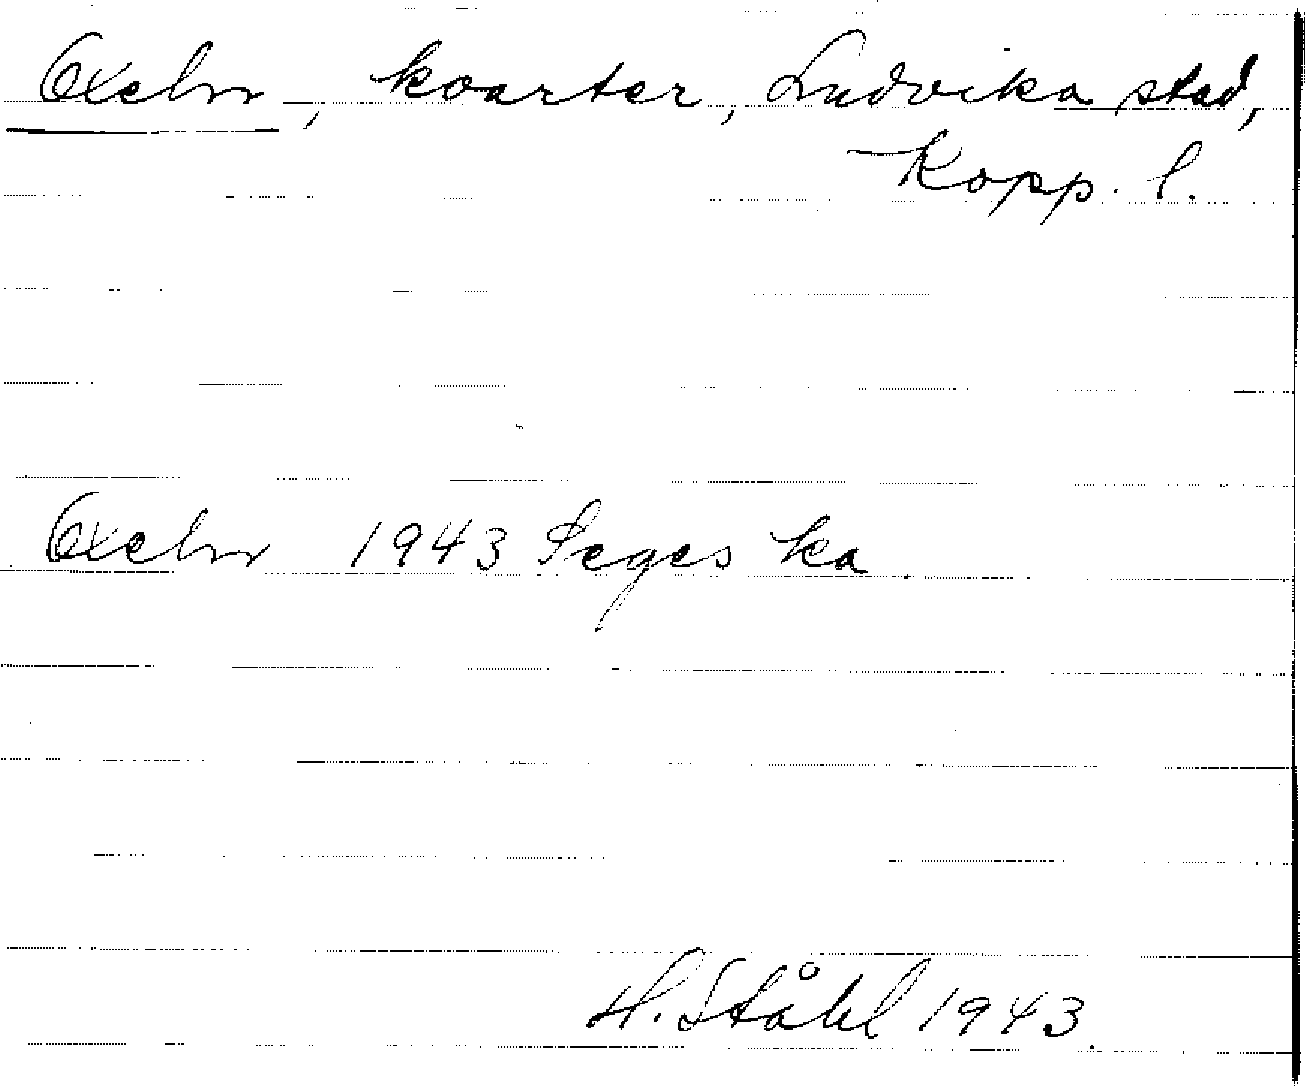 Oxeln, kvarter, Ludvika stad,
Kopp. l.
Oxeln 1943 Seges ka
H. Ståhl 1943.